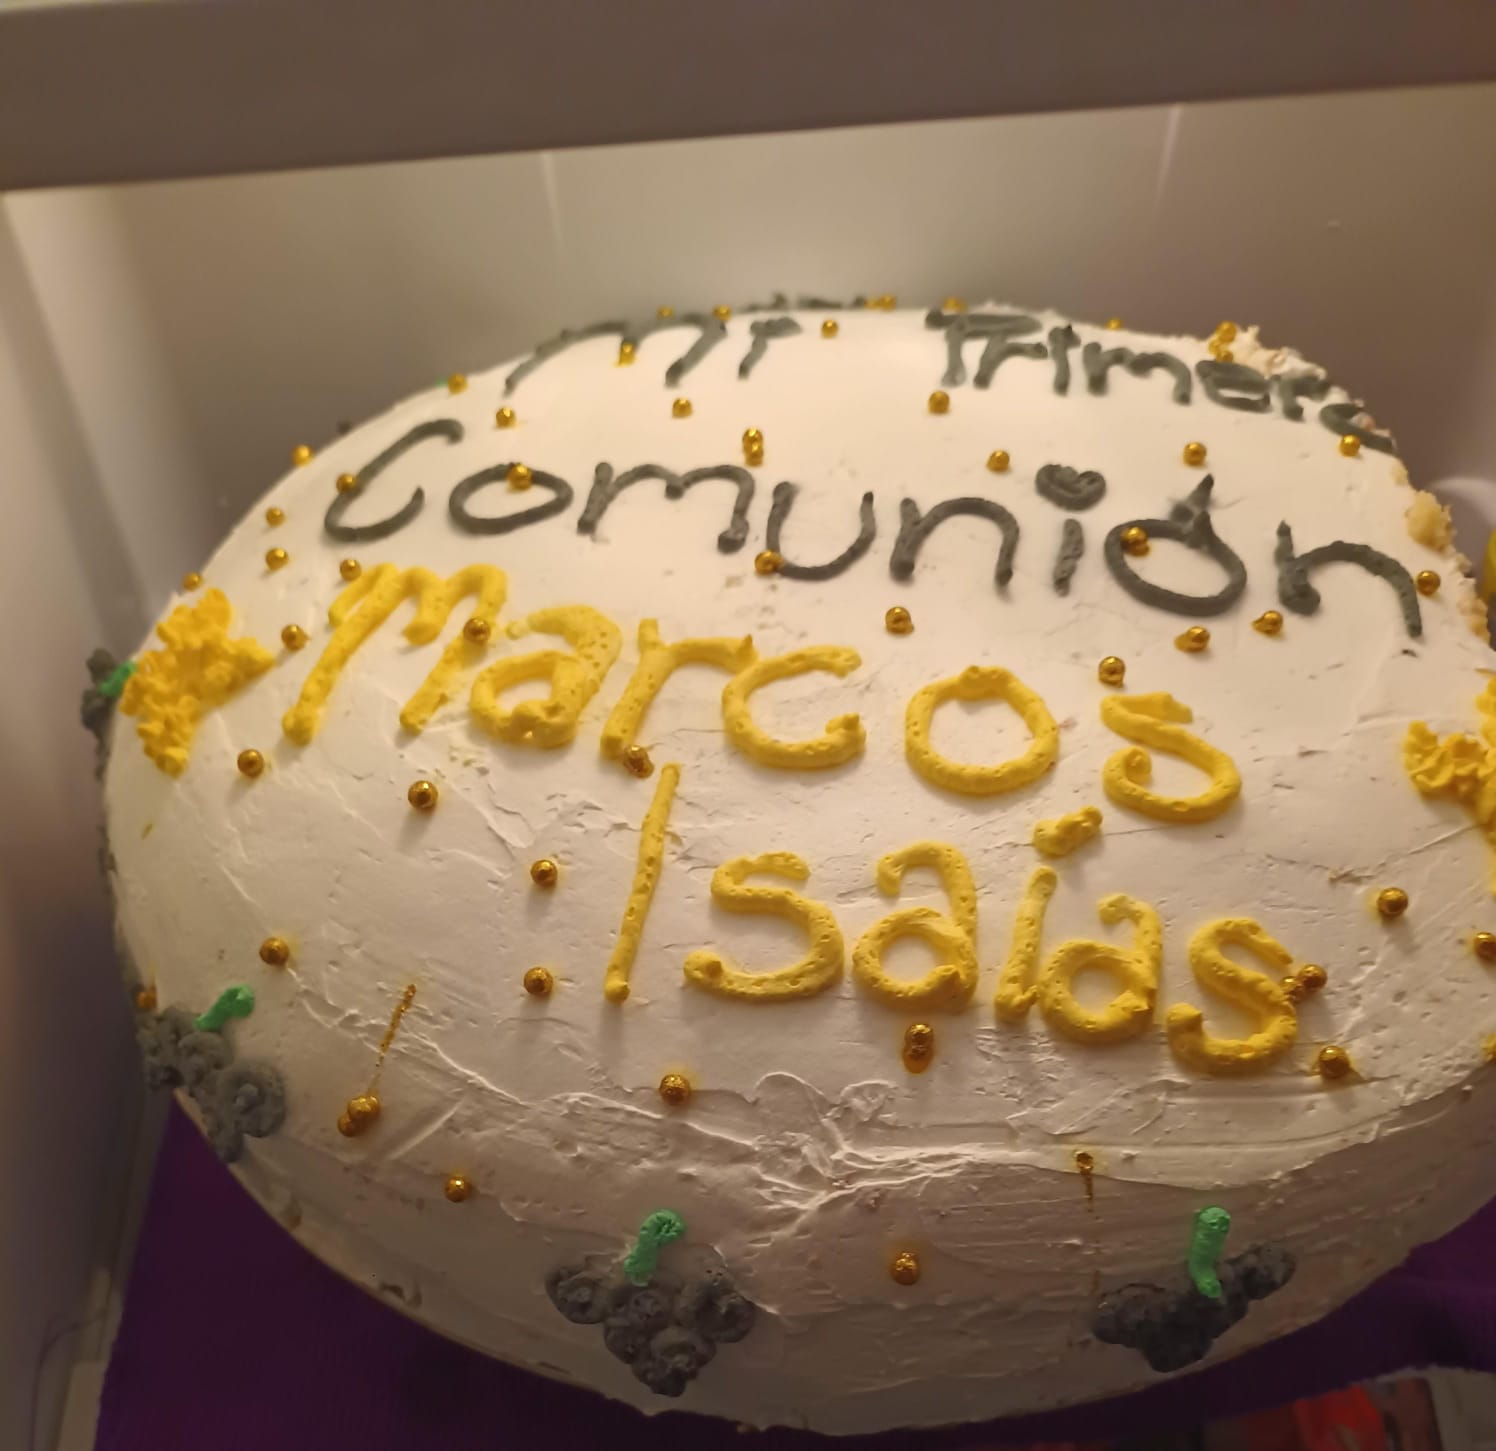 Mi Primera
Comunión
Marcos
Isaías